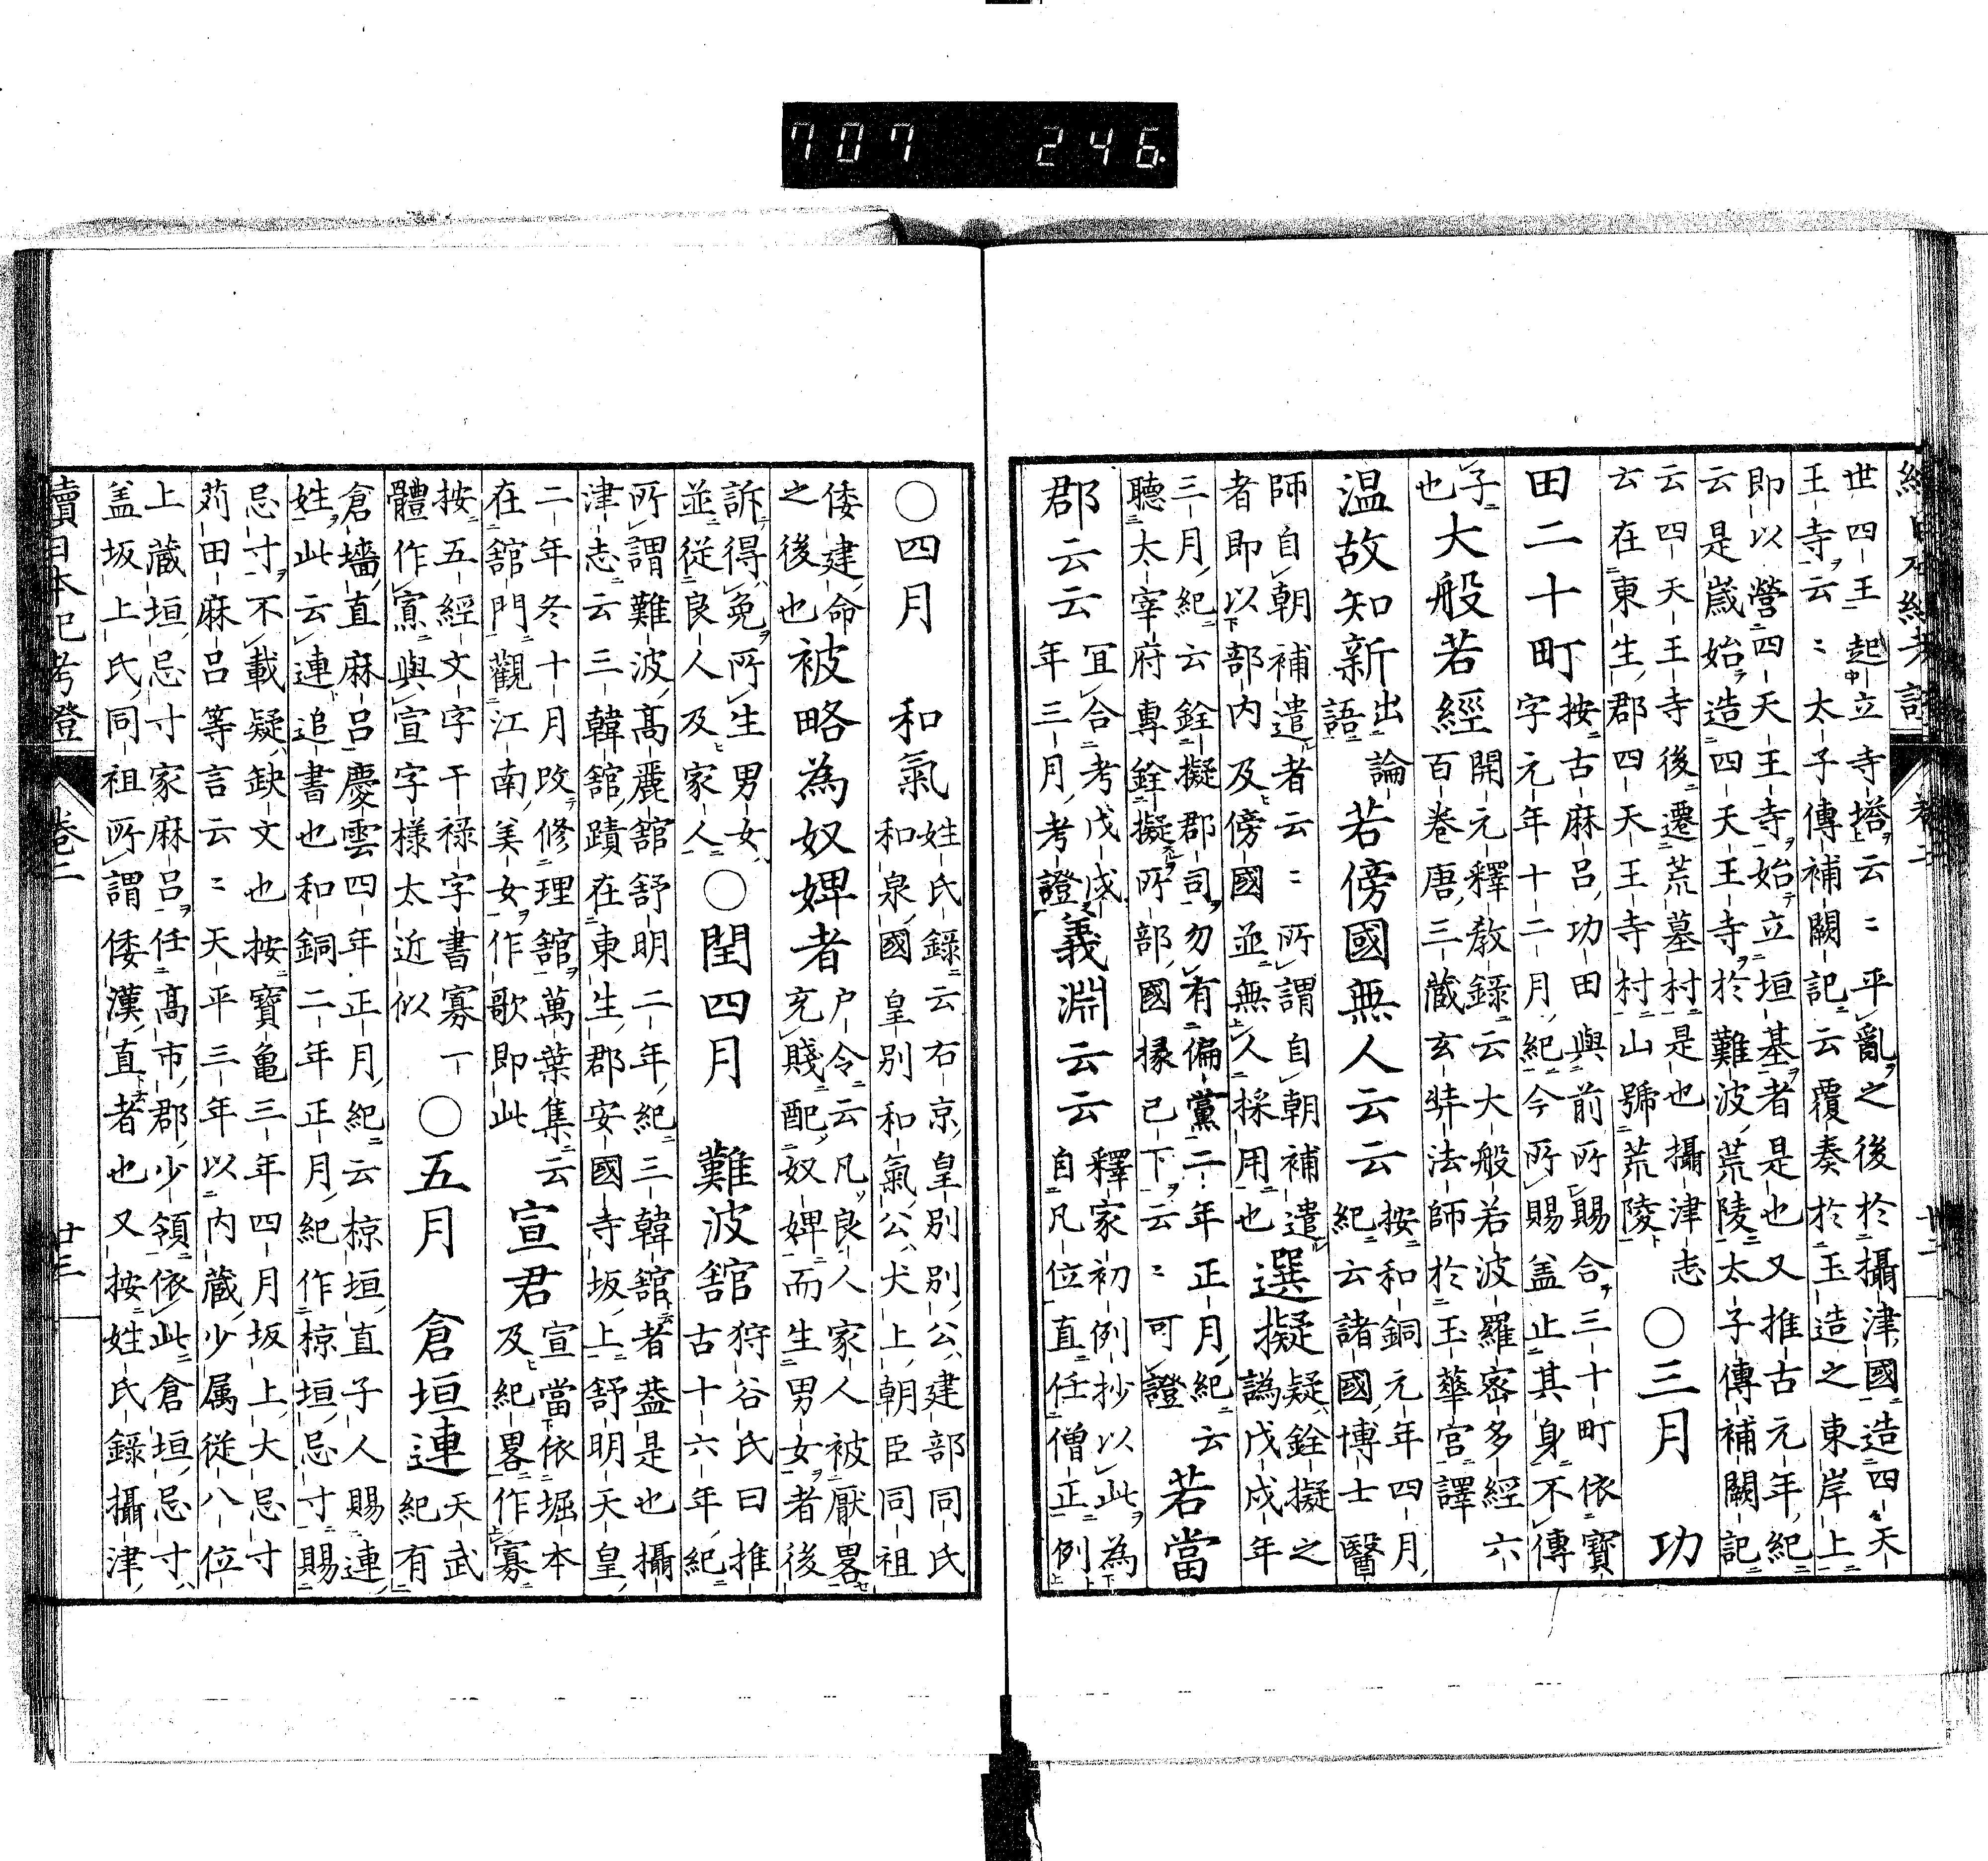 707 246.
世四王起立寺塔云〻平亂之後於攝津國造四天
王寺云〻太子傳補闕記云覆奏於玉造之東岸上
即以營四天王寺始立垣基者是也又推古元年紀
云是歳始造四天王寺於難波荒陵太子傳補闕記
云四天王寺後遷荒墓村是也攝津志
云在東生郡四天王寺村山號荒陵
○三月 功
田二十町
按古麻呂功田與前所賜合三十町依寶
字元年十二月紀今所賜盖止其身不傳
子
也
大般若經
開元釋教錄云大般若波羅密多經六
百卷唐三藏玄弉法師於玉華宮譯
温故知新
出論
語
若傍國無人云云
按和銅元年四月
紀云諸國博士醫
師自朝補遣者云〻所謂自朝補遣
者即以部内及傍國並無人採用也
選擬
疑銓擬之
譌戊戌年
三月紀云銓擬郡司勿有偏黨二年正月紀云
聽太宰府專銓擬所部國掾已下云〻可證
若當
郡云云
冝合考戊戌
年三月考證
義淵云云
釋家初例抄以此為
自凡位直任僧正例
續日本紀考證 卷二
○四月 和氣
姓氏錄云右京皇別別公建部同氏
和泉國皇別和氣公犬上朝臣同祖
倭建命
之後也
被略為奴婢者
户令云凡良人家人被厭畧
充賤配奴婢而生男女者後
訴得免所生男女
並從良人及家人
○閏四月 難波館
狩谷氏曰推
古十六年紀
所謂難波髙麗館舒明二年紀三韓館者葢是也攝
津志云三韓館蹟在東生郡安國寺坂上舒明天皇
二年冬十月改修理館萬葉集云
在館門觀江南美女作歌即此
宣君
宣當依堀本
及紀畧作寡
按五經文字干禄字書寡丅
體作㝢與宣字様太近似
○五月 倉垣連
天武
紀有
倉墻直麻呂慶雲四年正月紀云椋垣直子人賜連
姓此云連追書也和銅二年正月紀作椋垣忌寸賜
忌寸不載疑缺文也按寶亀三年四月坂上大忌寸
苅田麻呂等言云〻天平三年以内藏少属從八位
上蔵垣忌寸家麻呂任髙市郡少領依此倉垣忌寸
盖坂上氏同祖所謂倭漢直者也又按姓氏錄攝津
續日本紀考證 卷二 廿三